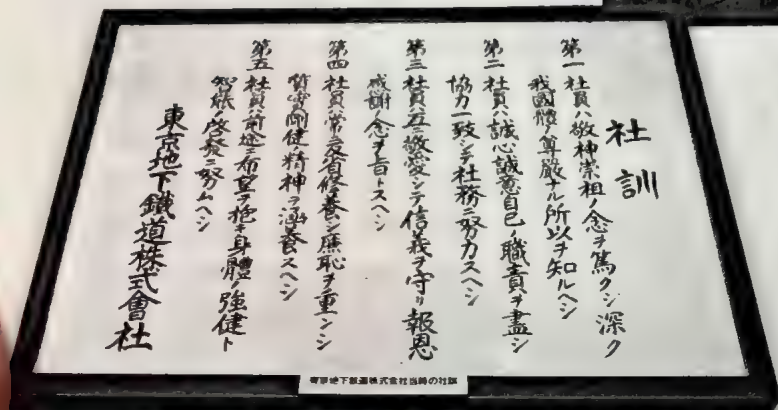 社訓
第一 社員ハ敬神崇祖ノ念ヲ篤クシ深ク
我國體ノ尊嚴ナル所以ヲ知ルヘシ
第二 社員ハ誠心誠意自己ノ職責ヲ盡シ
協力一致シテ社務ニ努力スヘシ
第三 社員ハ互ニ敬愛シテ信義ヲ守リ報恩
感謝ノ念ヲ旨トスヘシ
第四 社員ハ常ニ反省修養シ廉恥ヲ重ンシ
質實剛健ノ精神ヲ涵養スヘシ
第五 社員ハ前途ニ希望ヲ抱キ身體ノ強健ト
智能ノ啓發ニ努ムヘシ
東京地下鐵道株式會社
東京地下鉄道株式会社当時の社訓